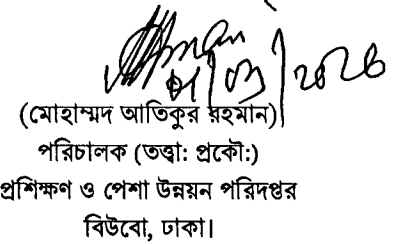 (মোহাম্মদ আতিকুর রহমান)
পরিচালক (তত্ত্বা: প্রকৌ:)
প্রশিক্ষণ ও পেশা উন্নয়ন পরিদপ্তর
বিউবো, ঢাকা।